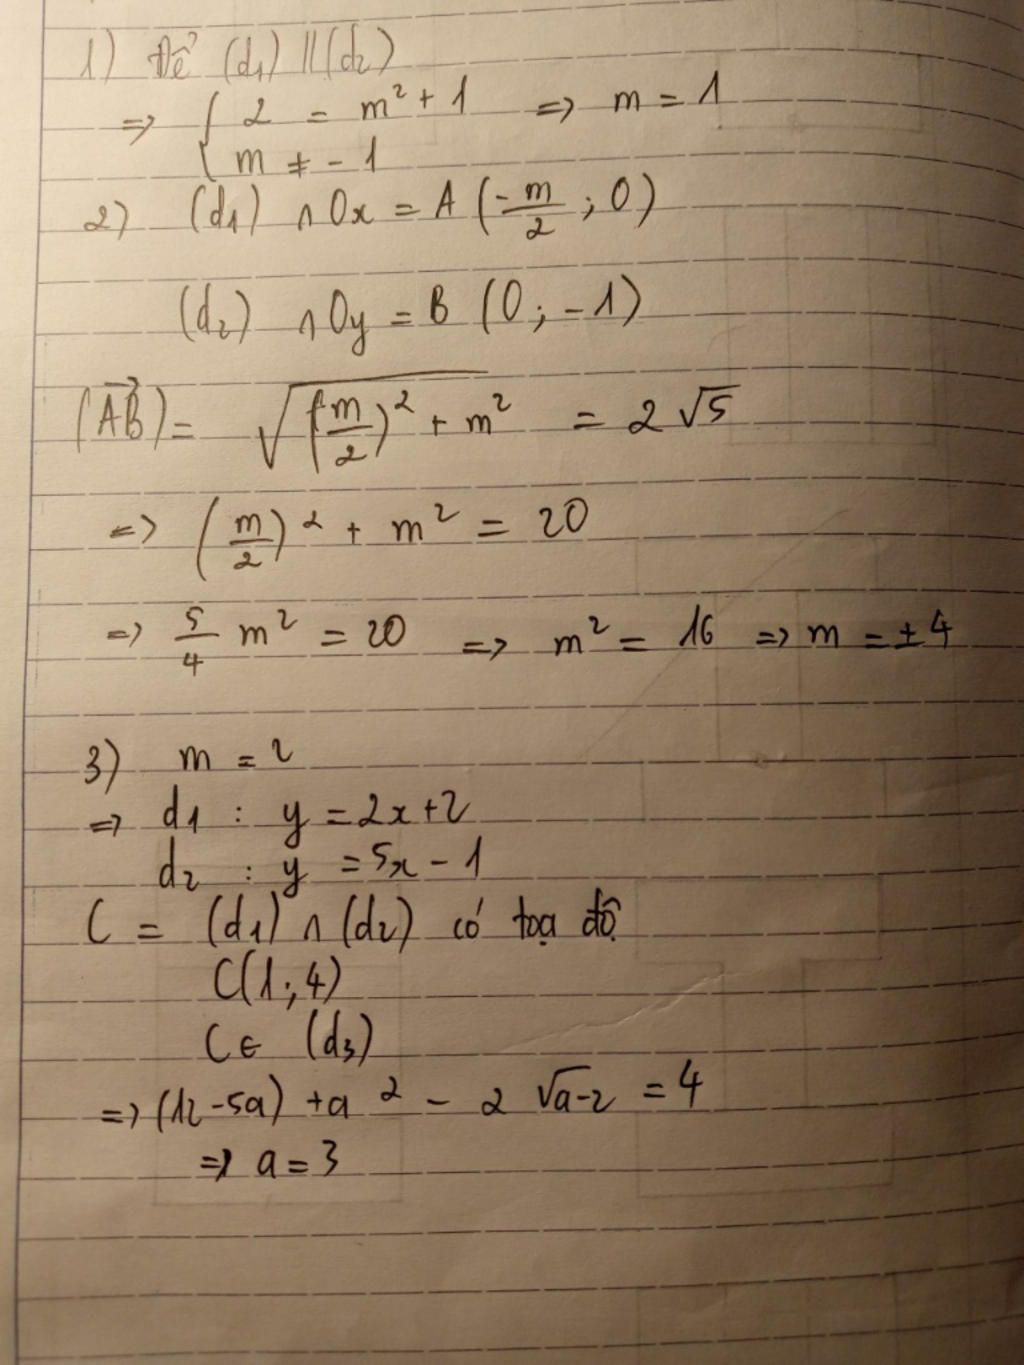 1) Để (d1) || (d2)
=> { 2 = m² + 1 => m = 1
m ≠ -1
2) (d1) ∩ Ox = A (-m/2 ; 0)
(d2) ∩ Oy = B (0 ; -1)
|AB→| = √((m/2)² + m²) = 2√5
=> (m/2)² + m² = 20
=> 5/4 m² = 20 => m² = 16 => m = ±4
3) m = 2
=> d1 : y = 2x+2
d2 : y = 5x - 1
C = (d1) ∩ (d2) có toạ độ
C(1;4)
C ∈ (d3)
=> (12-5a) + a² - 2√(a-2) = 4
=> a = 3